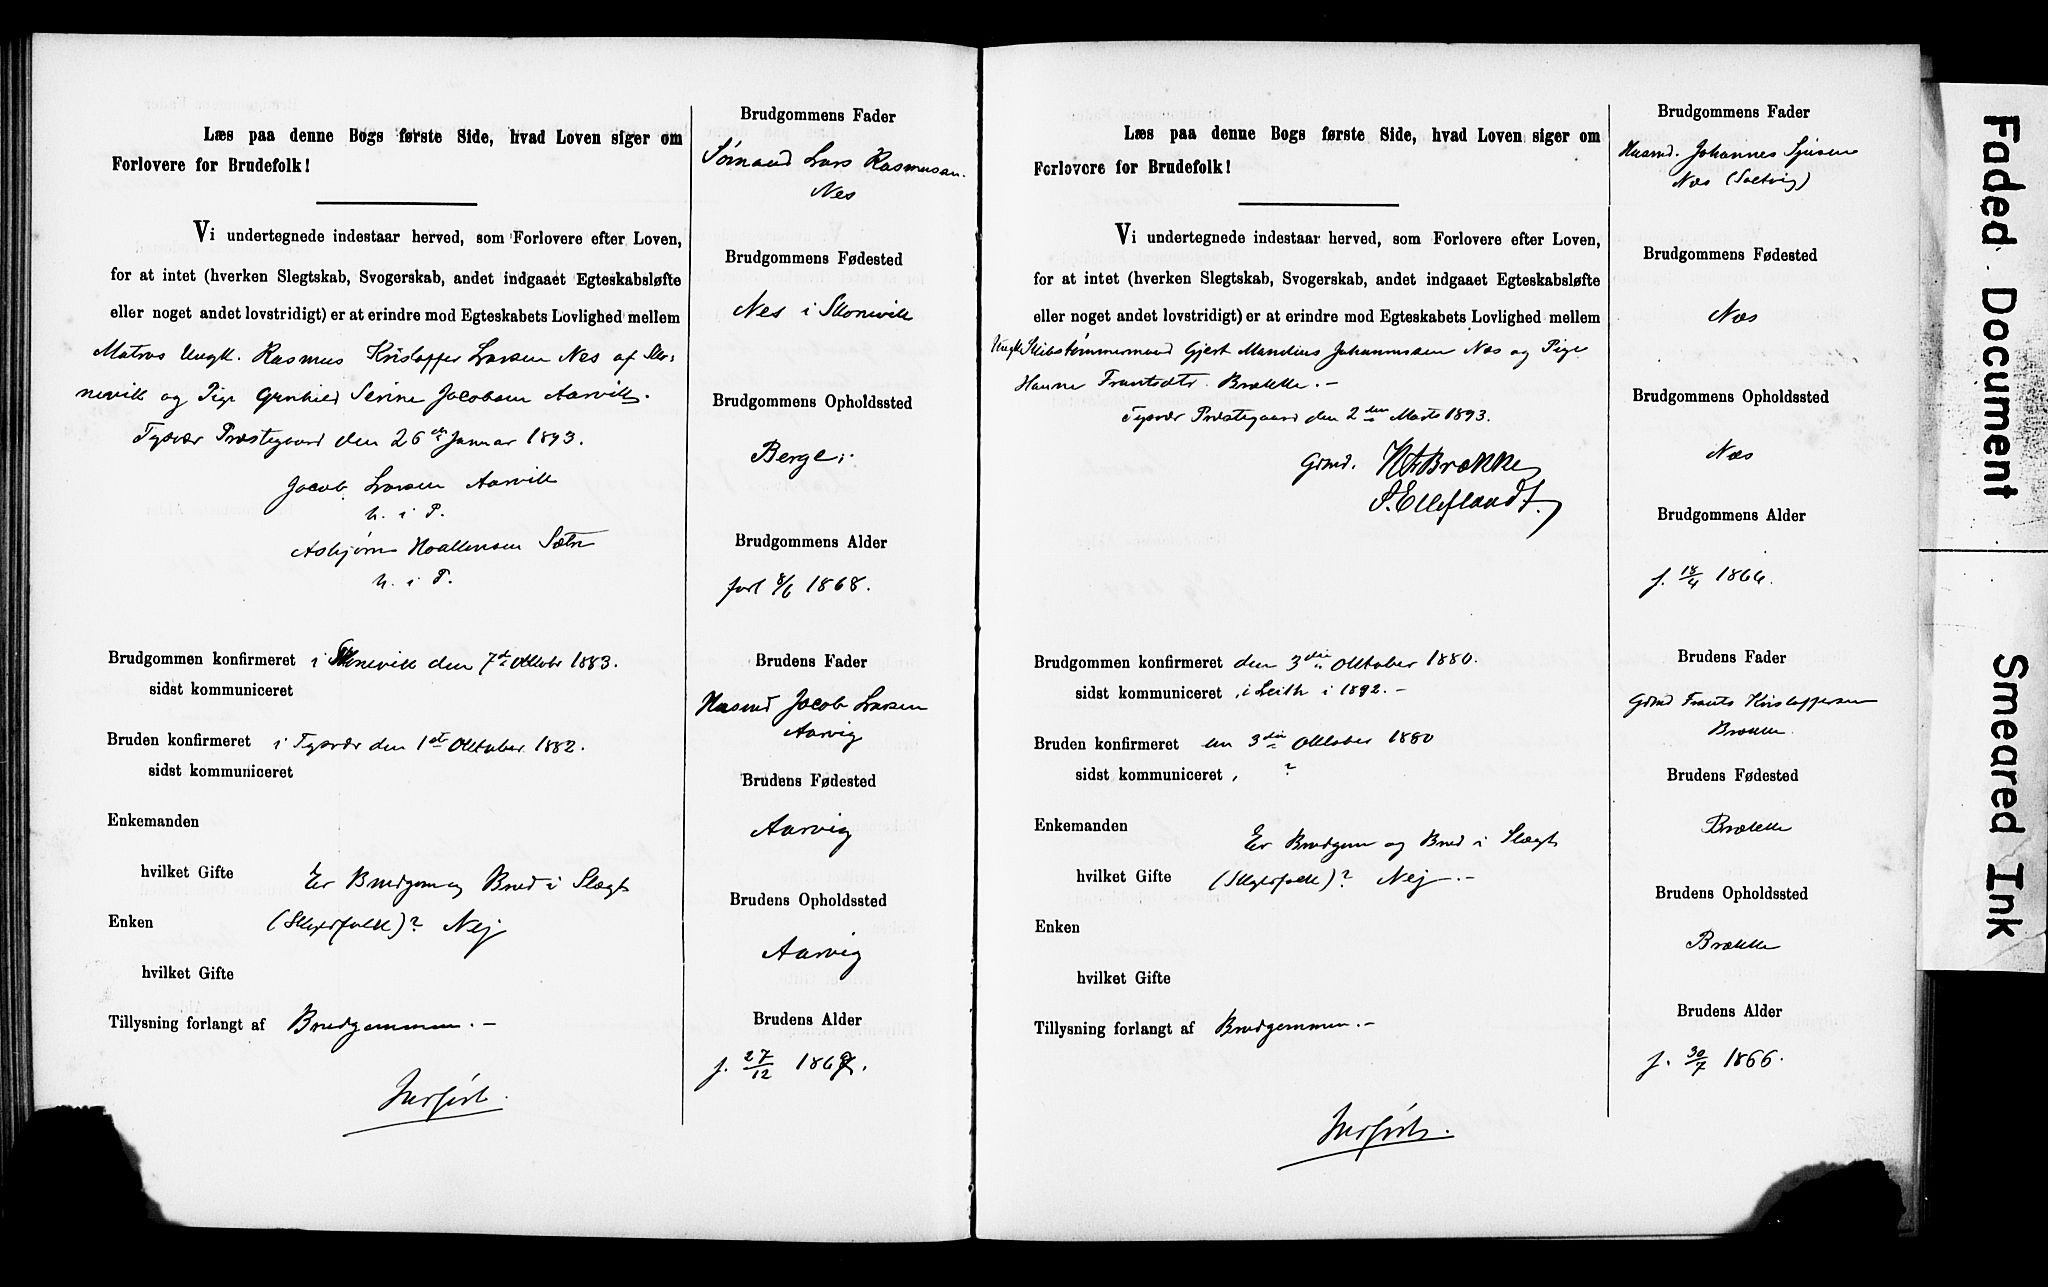 Læs paa denne Bogs første Side, hvad Loven siger om
Forlovere for Brudefolk!
Vi undertegnede indestaar herved, som Forlovere efter Loven,
for at intet (hverken Slegtskab, Svogerskab, andet indgaaet Egteskabsløfte
eller noget andet lovstridigt) er at erindre mod Egteskabets Lovlighed mellem
Matros Ungk. Rasmus Kristoffer Larsen Nes af Sko-
nevik og Pige Gunhild Serine Jacobsen Aarvik.
Tysvær Præstegaard den 26de Januar 1893.
Jacob Larsen Aarvik
m. i P.
Asbjørn Sætre
m. i P.
Brudgommen konfirmeret i Skonevik den 7de Oktobr 1883.
sidst kommuniceret
Bruden konfirmeret i Tysvær den 1ste Oktober 1882.
sidst kommuniceret
Enkemanden
hvilket Gifte
Er Brudgom og Brud i Slægt
Enken
(Skyldfolk)? Nej
hvilket Gifte
Tillysning forlangt af Brudgommen. –
Indført.
Brudgommens Fader
Sømand Lars Rasmussen
Nes
Brudgommens Fødested
Nes i Skonevik
Brudgommens Opholdssted
Berge
Brudgommens Alder
født 8/6 1868.
Brudens Fader
Husmd Jacob Larsen
Aarvig
Brudens Fødested
Aarvig
Brudens Opholdssted
Aarvig
Brudens Alder
f. 27/12 1867.
Læs paa denne Bogs første Side, hvad Loven siger om
Forlovere for Brudefolk!
Vi undertegnede indestaar herved, som Forlovere efter Loven,
for at intet (hverken Slegtskab, Svogerskab, andet indgaaet Egteskabsløfte
eller noget andet lovstridigt) er at erindre mod Egteskabets Lovlighed mellem
Ungk. Skibstømmermand Gjert Mandius Johannessen Næs og Pige
Hanne Frantsdtr. Brække. –
Tysvær Præstegaard den 2den Marts 1893.
Grmd. K A Brække
S. Elleflaadt.
Brudgommen konfirmeret den 3die Oktober 1880.
sidst kommuniceret i Leith i 1892. –
Bruden konfirmeret den 3die Oktober 1880
sidst kommuniceret , ?
Enkemanden
Er Brudgom og Brud i Slægt
hvilket Gifte
(Skyldfolk)? Nej. –
Enken
hvilket Gifte
Tillysning forlangt af Brudgommen. –
Indført.
Brudgommens Fader
Husmd. Johannes
Næs (Soelvig)
Brudgommens Fødested
Næs
Brudgommens Opholdssted
Næs
Brudgommens Alder
f. 18/4 1864.
Brudens Fader
Grmd Frants Kristoffersen
Brække.
Brudens Fødested
Brække
Brudens Opholdssted
Brække
Brudens Alder
f. 30/7 1866.
Faded Document
Smeared Ink